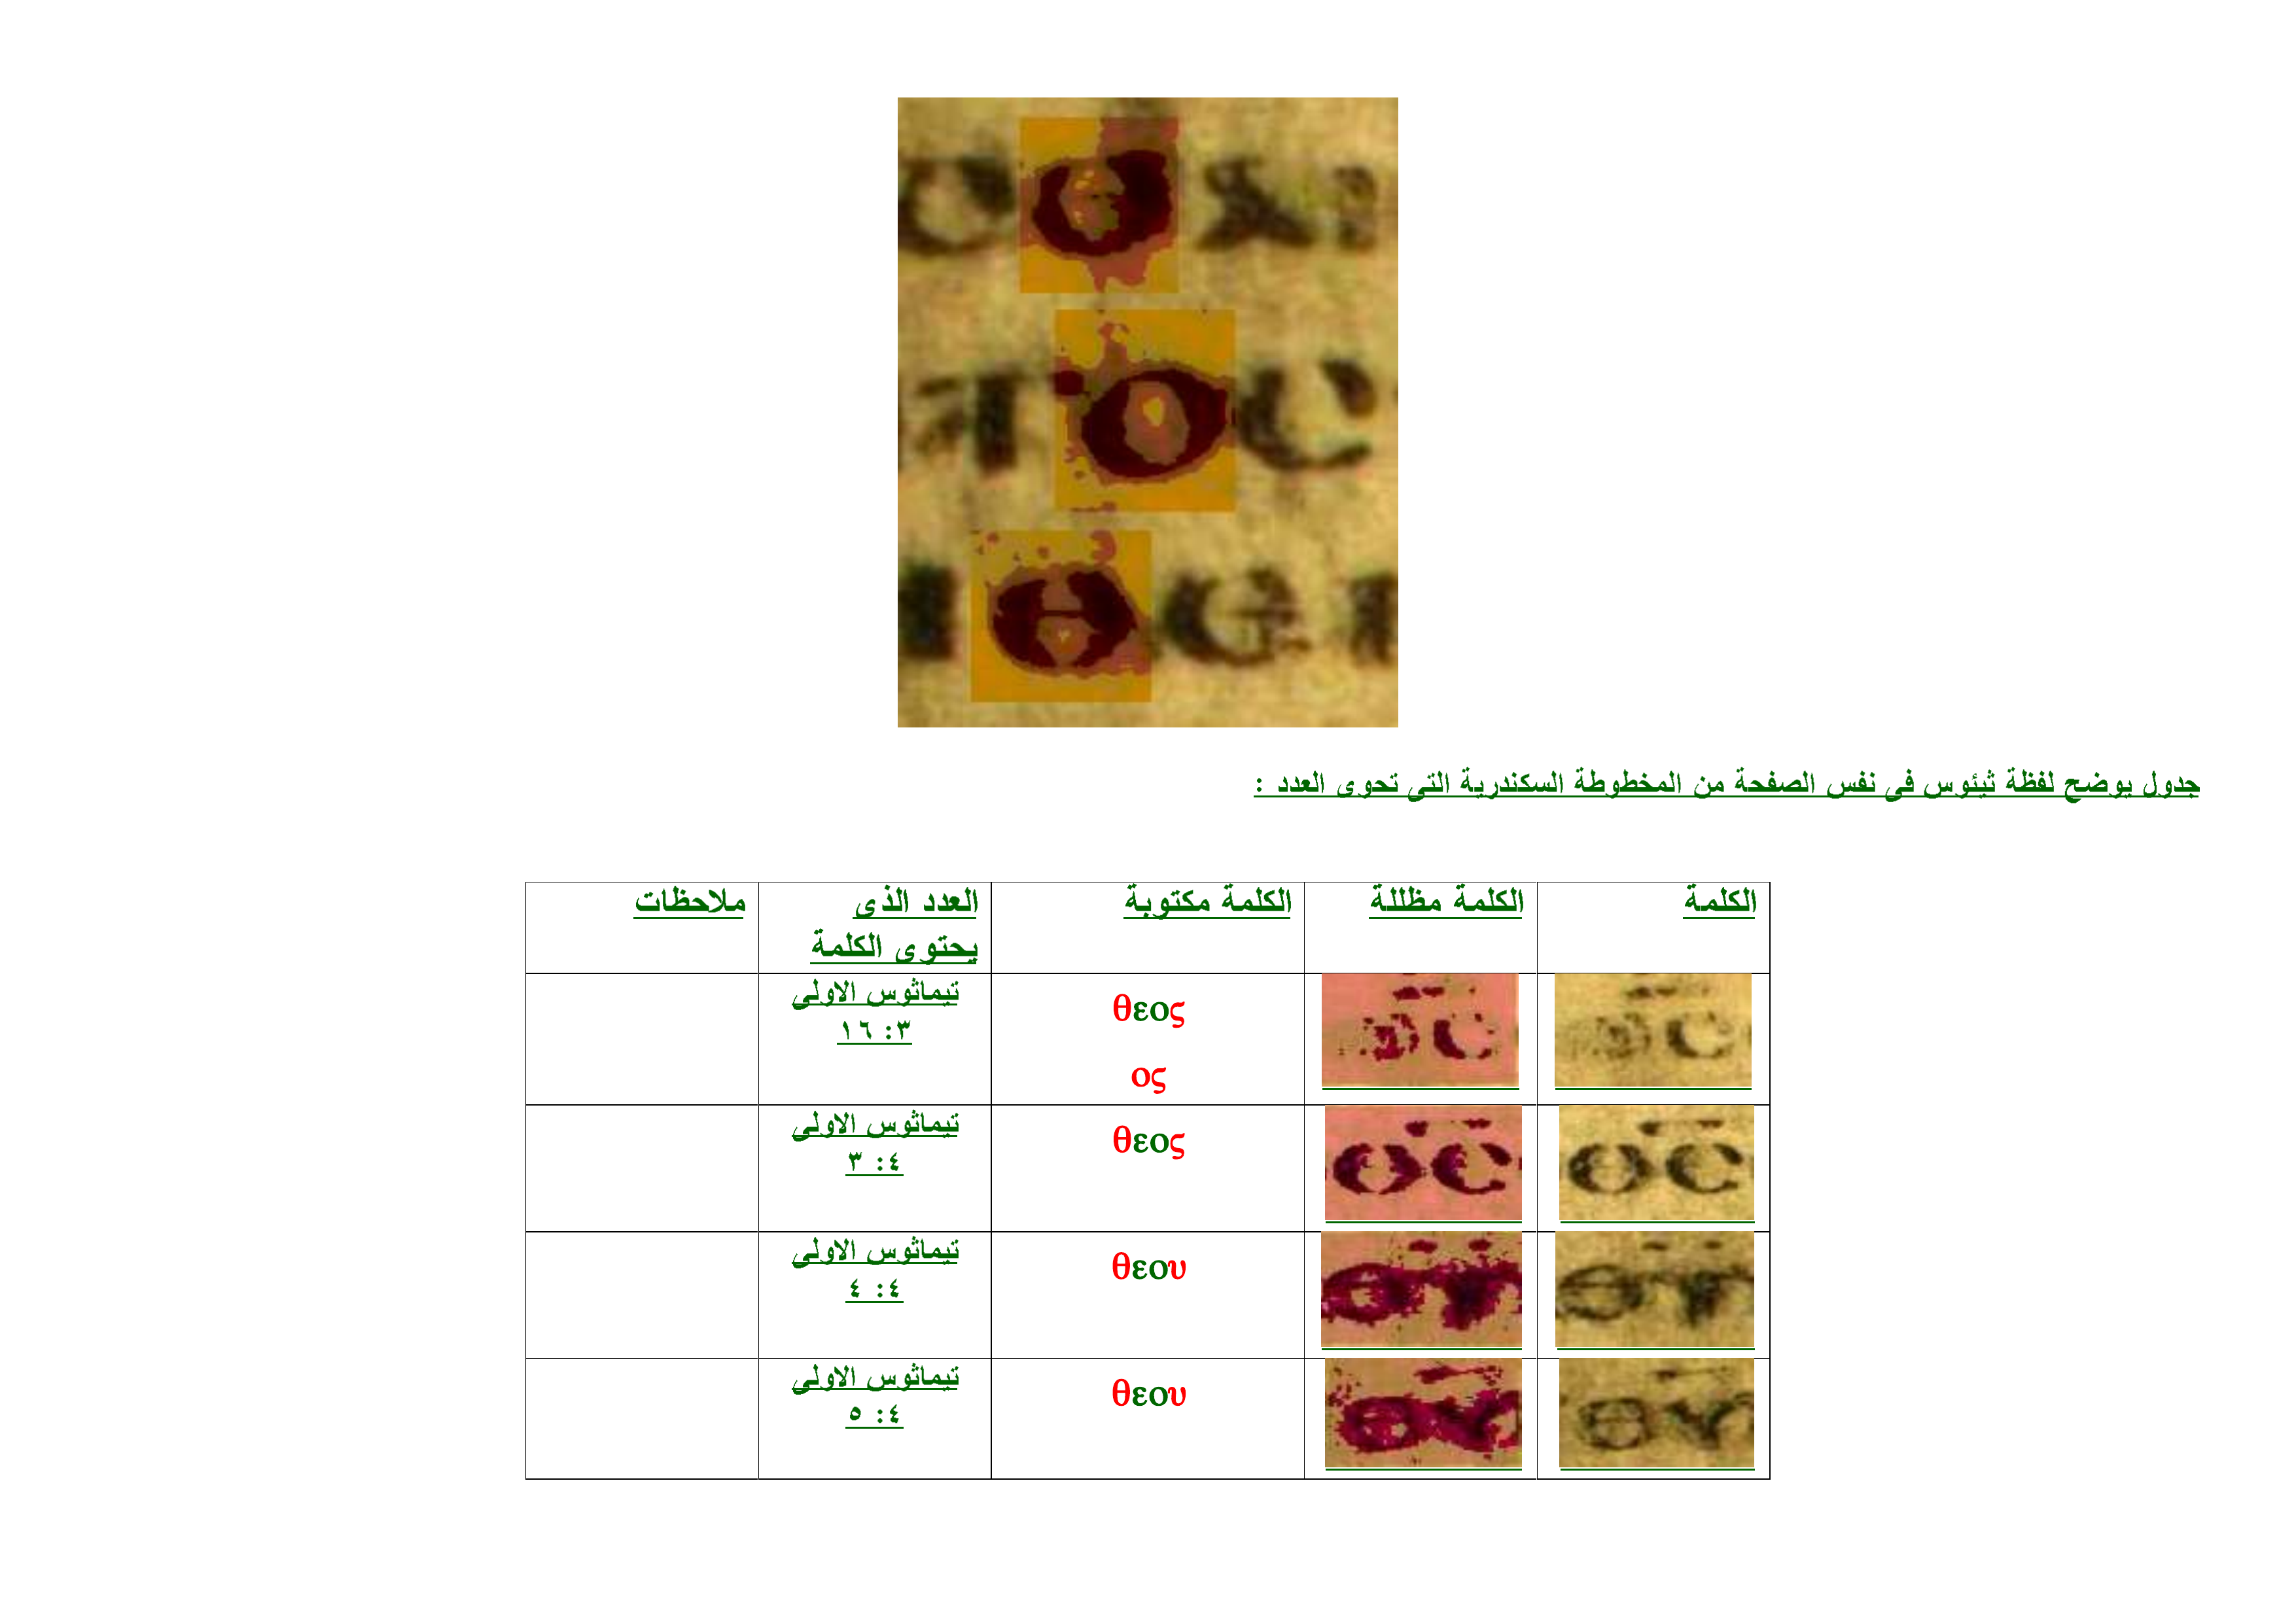 جدول يوضح لفظة ثيئوس فى نفس الصفحة من المخطوطة السكندرية التى تحوى العدد :
الكلمة
الكلمة مظللة
الكلمة مكتوبة
العدد الذى
يحتوى الكلمة
ملاحظات
ΘC
θεος
ος
تيماثوس الاولى
٣: ١٦
ΘC
θεος
تيماثوس الاولى
٤: ٣
ΘΥ
θεου
تيماثوس الاولى
٤: ٤
ΘΥ
θεου
تيماثوس الاولى
٤: ٥